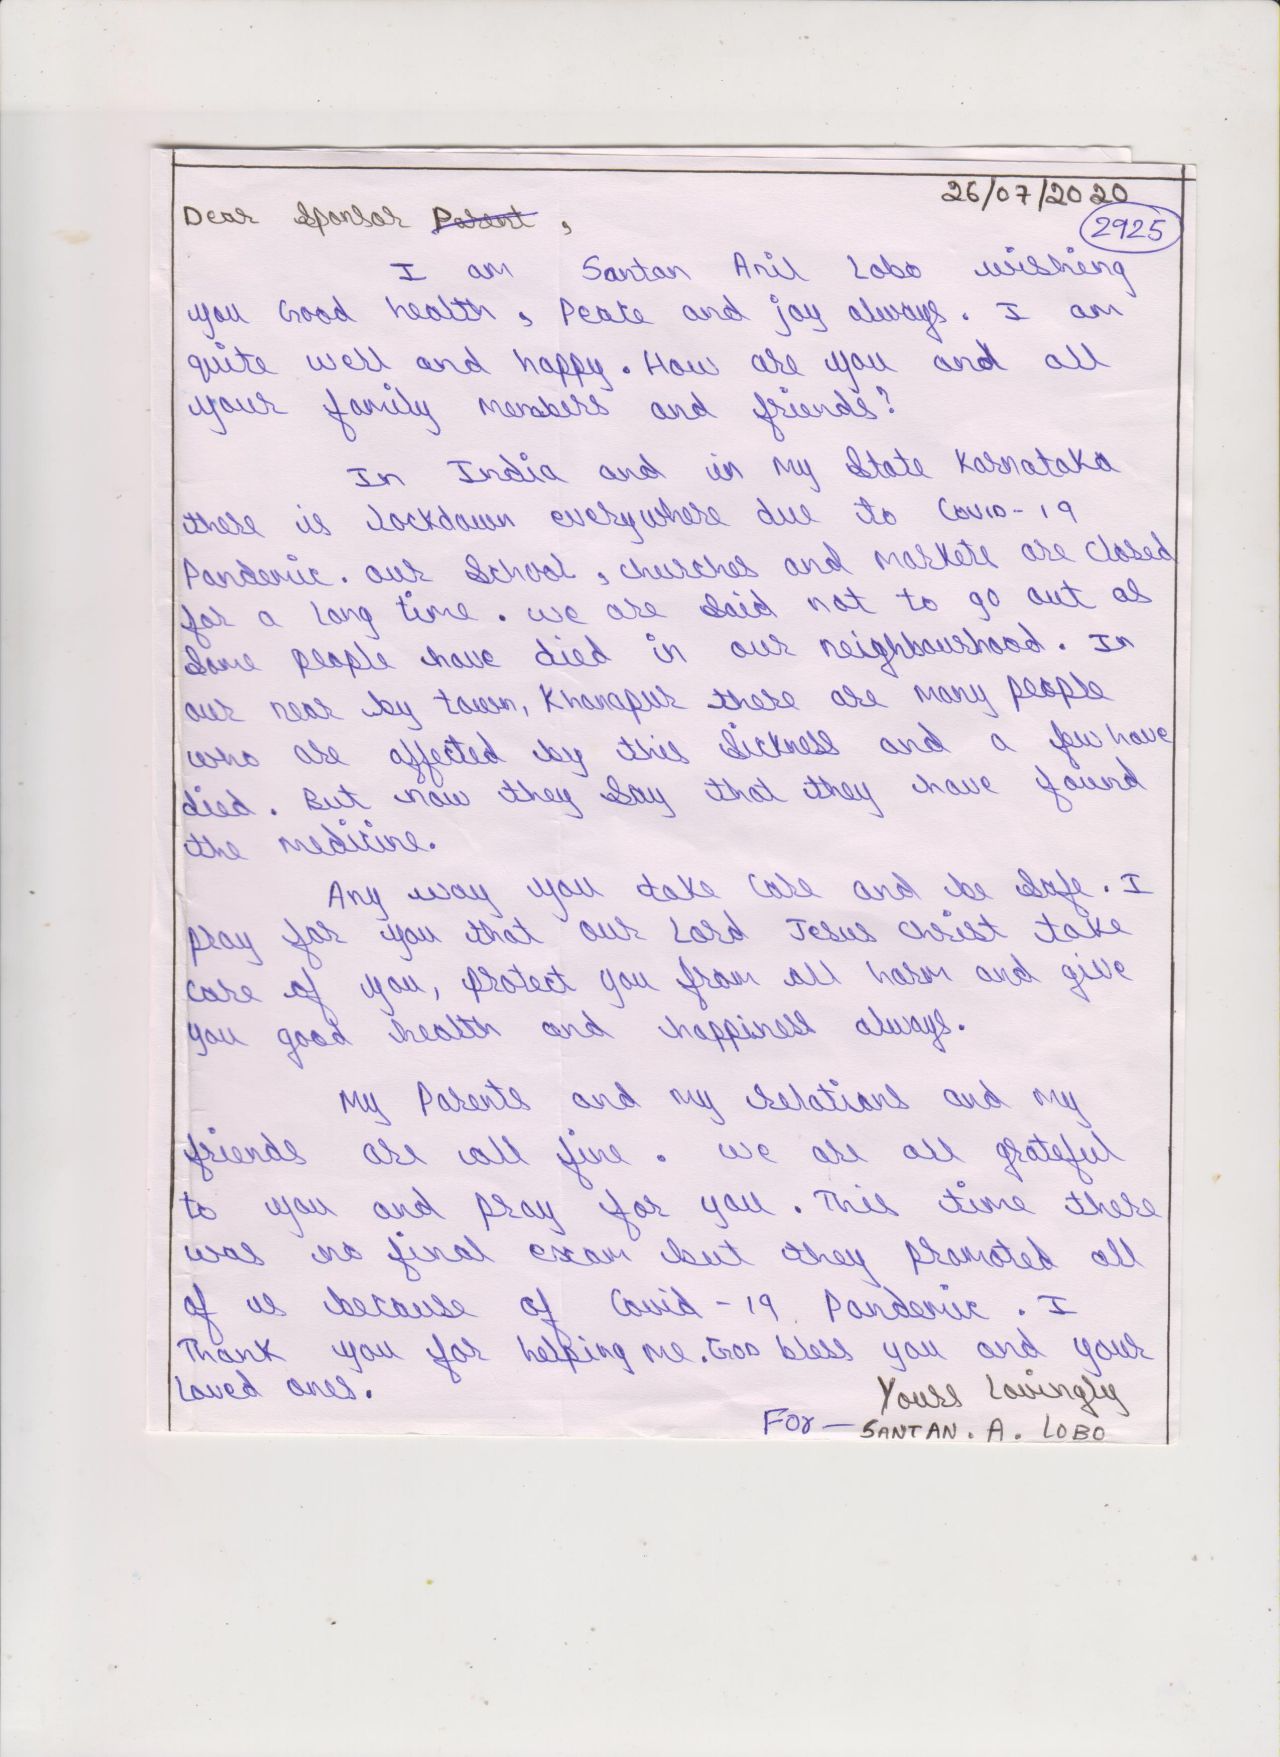 26/07/2020
Dear Sponsor Parent,
2925
I am Santan Anil Lobo wishing
you Good health, Peace and joy always. I am
quite well and happy. How are you and all
your family members and friends?
In India and in my State Karnataka
there is lockdown everywhere due to Covid-19
Pandemic. our School, churches and markets are closed
for a long time. we are said not to go out as
Some people have died in our neighbourhood. In
our near by town, Khanapur there are many people
who are affected by this Sickness and a few have
died. But now they Say that they have found
the medicine.
Any way you take care and be Safe. I
pray for you that our Lord Jesus christ take
care of you, protect you from all harm and give
you good health and happiness always.
My Parents and my relations and my
friends are all fine. we are all grateful
to you and pray for you. This time there
was no final exam but they promoted all
of us because of Covid-19 Pandemic. I
Thank you for helping me. God bless you and your
loved ones.
Yours Lovingly
For - SANTAN. A. LOBO